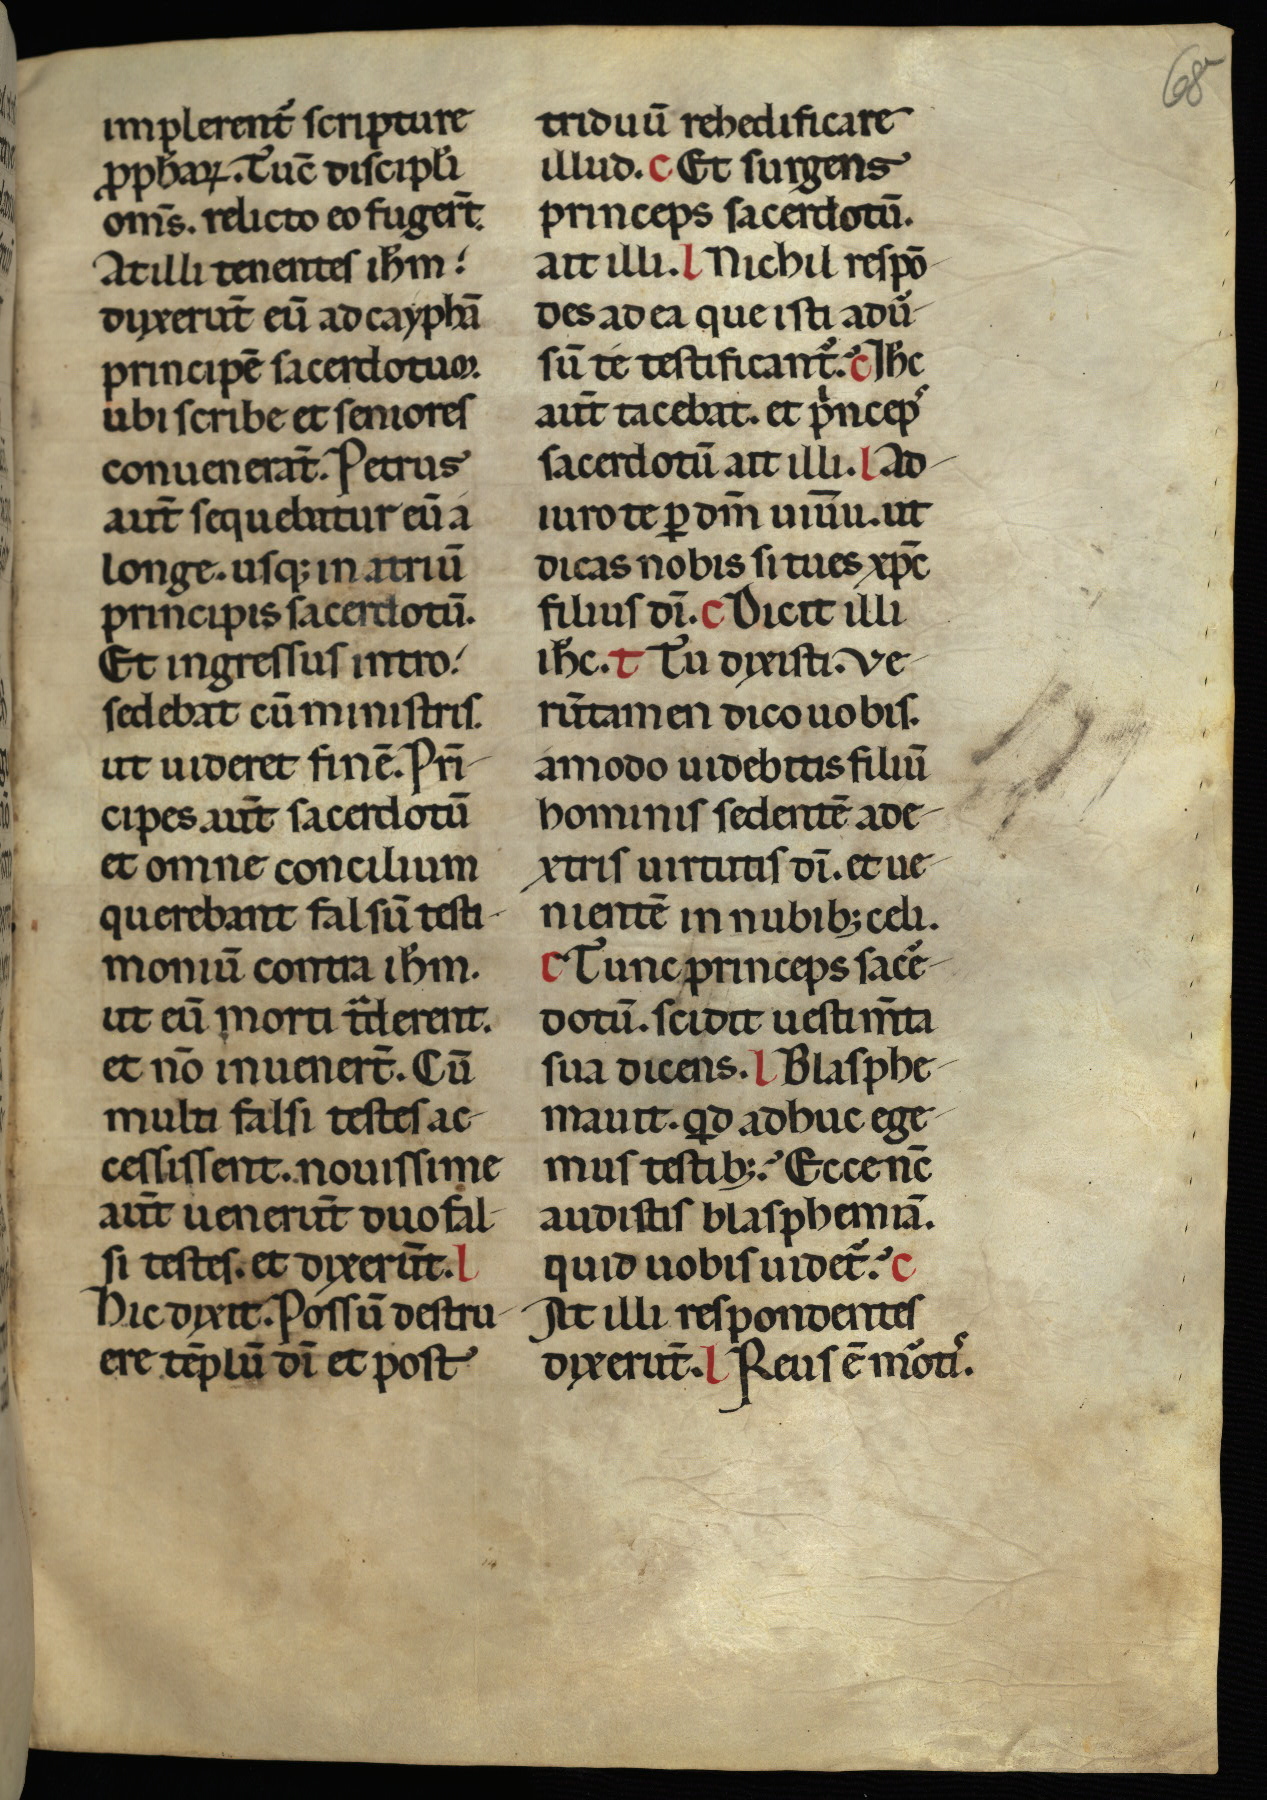 68
implerent᷑ scripture
ꝓph̄aꝝ. Tūc discipl̄i
om̄s. relicto eo fugert̄.
At illi tenentes ih̄m:
dixerūt eū ad cayphā
principē sacerdotum.
ubi scribe et seniores
conuenerāt. Petrus
aūt sequebatur eū a
longe. usq; in atriū
principis sacerdotū.
Et ingressus intro:
sedebat cū ministris.
ut uideret finē. Pri̅
cipes aūt sacerdotū
et omne concilium
querebant falsū testi
moniū contra ih̄m.
ut eū morti tͣderent.
et nō inuenert̄. Cū
multi falsi testes ac
cessissent. nouissime
aūt uenerūt duo fal
si testes. et dixerūt. l
Hic dixit. Possū destru
ere tēplū dī et post
triduū rehedificare
illud. c Et surgens
princeps sacerdotū.
ait illi. l Nichil respō
des ad ea que isti adu᷑
sū te testificant᷑. c Ih̄c
aūt tacebat. et pͥncepˢ
sacerdotū ait illi. l Ad
iuro te ꝑ dm̄ uiūu. ut
dicas nobis si tu es xp̄c
filius dī. c Dicit illi
ih̄c. t Tu dixisti. Ve
rūtamen dico uobis.
amodo uidebitis filiū
hominis sedentē a de
xtris uirtutis dī. et ue
nientē in nubib; celi.
c Tunc princeps sace᷑
dotū. scidit uestim̄ta
sua dicens. l Blasphe
mauit. qd adhuc ege
mus testib;. Ecce nc̄
audistis blasphemiā.
quid uobis uidet᷑. c
At illi respondentes
dixerūt. l Reus ē mo᷑tiˢ.